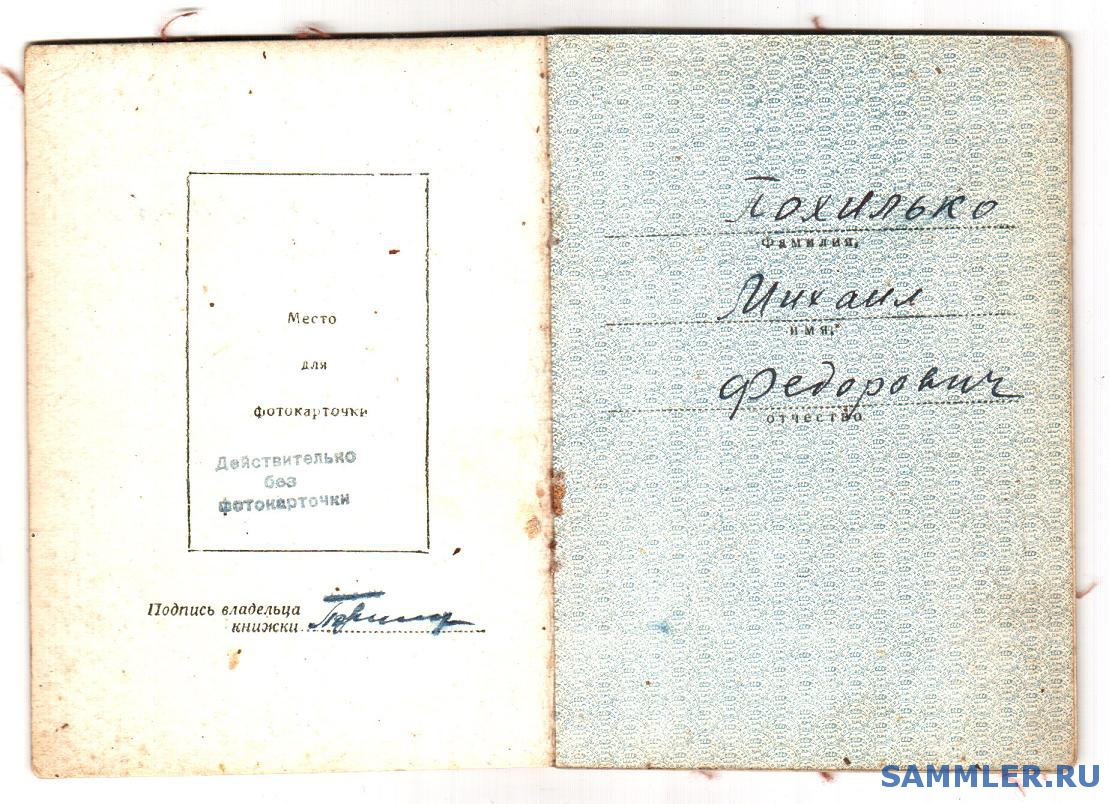 Место
для
фотокарточки
Действительно
без
фотокарточки
Подпись владельца
книжки
Похилько
фамилия,
Михаил
имя,
Федорович
отчество
SAMMLER.RU